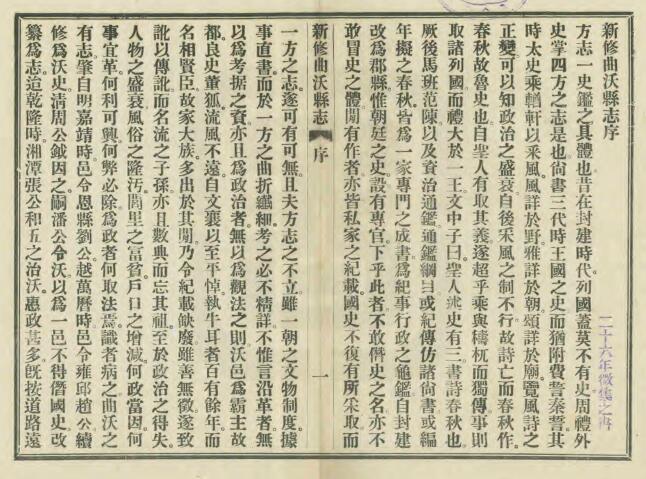 新修曲沃縣志序
方志一史鑑之具體也昔在封建時代。列國蓋莫不有史周禮外
史掌四方之志是也尙書三代時王國之史而猶附費誓秦誓其
時太史乘輶軒以采風。風詳於野雅詳於朝。頌詳於廟。覽風詩之
正變可以知政治之盛衰自後采風之制不行。故詩亡而春秋作。
春秋故魯史也。自聖人有取其義遂超乎乘與檮杌而獨傳事則
取諸列國而禮大於一王文中子曰聖人述史有三書詩春秋也。
厥後馬班范陳以及資治通鑑通鑑綱目或紀傳仿諸尙書或編
年擬之春秋。皆爲一家專門之成書。爲紀事行政之龜鑑。自封建
改爲郡縣。惟朝廷之史設有專官。下乎此者不敢僭史之名亦不
敢冒史之體間有作者亦皆私家之紀載國史不復有所采取而
新修曲沃縣志 序 一
一方之志遂可有可無。且夫方志之不立雖一朝之文物制度。據
事直書而於一方之曲折纖細。考之必不精詳。不惟言沿革者無
以爲考據之資亦且爲政治者。無以爲觀法之則。沃邑爲霸主故
都良史董狐流風不遠自文襄以至平悼執牛耳者百有餘年而
名相賢臣故家大族。多出於其間乃令紀載缺廢雖善無徵遂致
訛以傳訛而名流之子孫亦且數典而忘其祖至於政治之得失。
人物之盛衰風俗之隆汚。閭里之富貧戶口之增減。何政當因何
事宜革。何利可興。何弊必除。爲政者何取法焉。識者病之曲沃之
有志肇自明嘉靖時邑令恩縣劉公越萬曆時邑令雍邱趙公續
修爲沃史淸周公鉞因之嗣潘公令沃以爲一邑不得僭國史改
纂爲志迨乾隆時湘潭張公和五之治沃惠政甚多旣按道路遠
二十六年徵集之冊